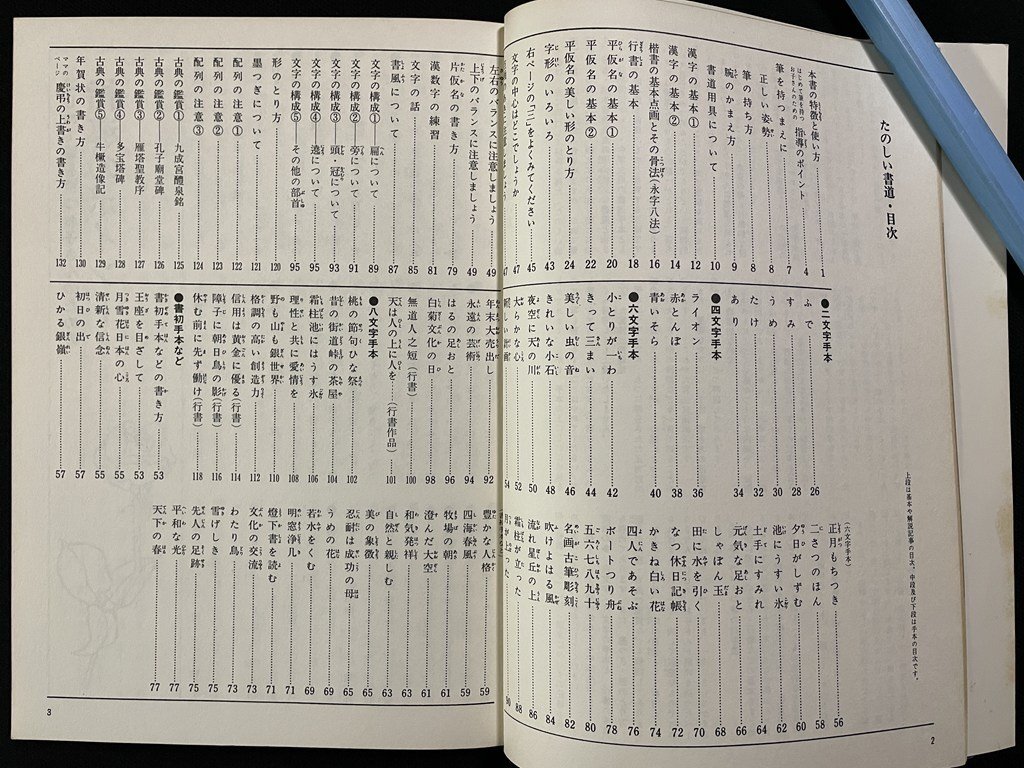 たのしい書道・目次
上段は基本や解説記事の目次、中段及び下段は手本の目次です。
本書の特徴と使い方 1
はじめて筆を持つお子さんのための 指導のポイント 4
筆を持つまえに 7
正しい姿勢 8
筆の持ち方 8
腕のかまえ方 9
書道用具について 10
漢字の基本① 12
漢字の基本② 14
楷書の基本点画とその骨法(永字八法) 16
行書の基本 18
平仮名の基本① 20
平仮名の基本② 22
平仮名の美しい形のとり方 24
字形のいろいろ 43
右ページの「三」をよくみてください 45
文字の中心はどこでしょうか 47
●二文字手本
ふで 26
すみ 28
うめ 30
たけ 32
あり 34
●四文字手本
ライオン 36
赤とんぼ 38
青いそら 40
●六文字手本
小とりが一わ 42
きって三まい 44
美しい虫の音 46
きれいな小石 48
夜空に天の川 50
大らかな心 52
(六文字手本)
正月もちつき 56
二さつのほん 58
夕日がしずむ 60
池にうす氷 62
土手にすみれ 64
元気な足おと 66
しゃぼん玉 68
田に水を引く 70
なつ休日記帳 72
かきね白い花 74
四人であそぶ 76
ボートつり舟 78
五六七八九十 80
名画古筆彫刻 82
吹けよはる風 84
流れ星丘の上 86
霜柱が立った 88
月が上った 90
2
左右のバランスに注意しましょう 49
上下のバランスに注意しましょう 49
片仮名の書き方 79
漢数字の練習 81
文字の話 85
書風について 87
文字の構成①―扁について 89
文字の構成②―旁について 91
文字の構成③―頭・冠について 93
文字の構成④―遶について 95
文字の構成⑤―その他の部首 95
形のとり方 120
墨つぎについて 121
配列の注意① 122
配列の注意② 123
配列の注意③ 124
古典の鑑賞①―九成宮醴泉銘 125
古典の鑑賞②―孔子廟堂碑 126
古典の鑑賞③―雁塔聖教序 127
古典の鑑賞④―多宝塔碑 128
古典の鑑賞⑤―牛橛造像記 129
年賀状の書き方 130
ママのページ 慶弔の上書きの書き方 132
年末大売出し 92
永遠の芸術 94
はるの足おと 96
白菊文化の日 98
無道人之短(行書) 100
天は人の上に人を……(行書作品) 101
●八文字手本
桃の節句ひな祭 102
昔の街道峠の茶屋 104
霜柱池にはうす氷 106
理性と共に愛情を 108
野も山も銀世界 110
格調の高い創造力 112
信用は黄金に優る(行書) 114
障子に朝日鳥の影(行書) 116
休む前に先ず働け(行書) 118
●書初手本など
書初手本などの書き方 53
王座を目ざして 53
月雪花日本の心 55
清新な信念 55
初日の出 57
ひかる銀嶺 57
豊かな人格 59
四海春風 59
牧場の朝 61
澄んだ大空 61
和気発祥 63
自然と親しむ 63
美の象徴 65
忍耐は成功の母 65
うめの花 69
若水をくむ 69
明窓浄几 71
燈下書を読む 71
文化の交流 73
わたり鳥 73
雪げしき 75
先人の足跡 75
平和な光 77
天下の春 77
3